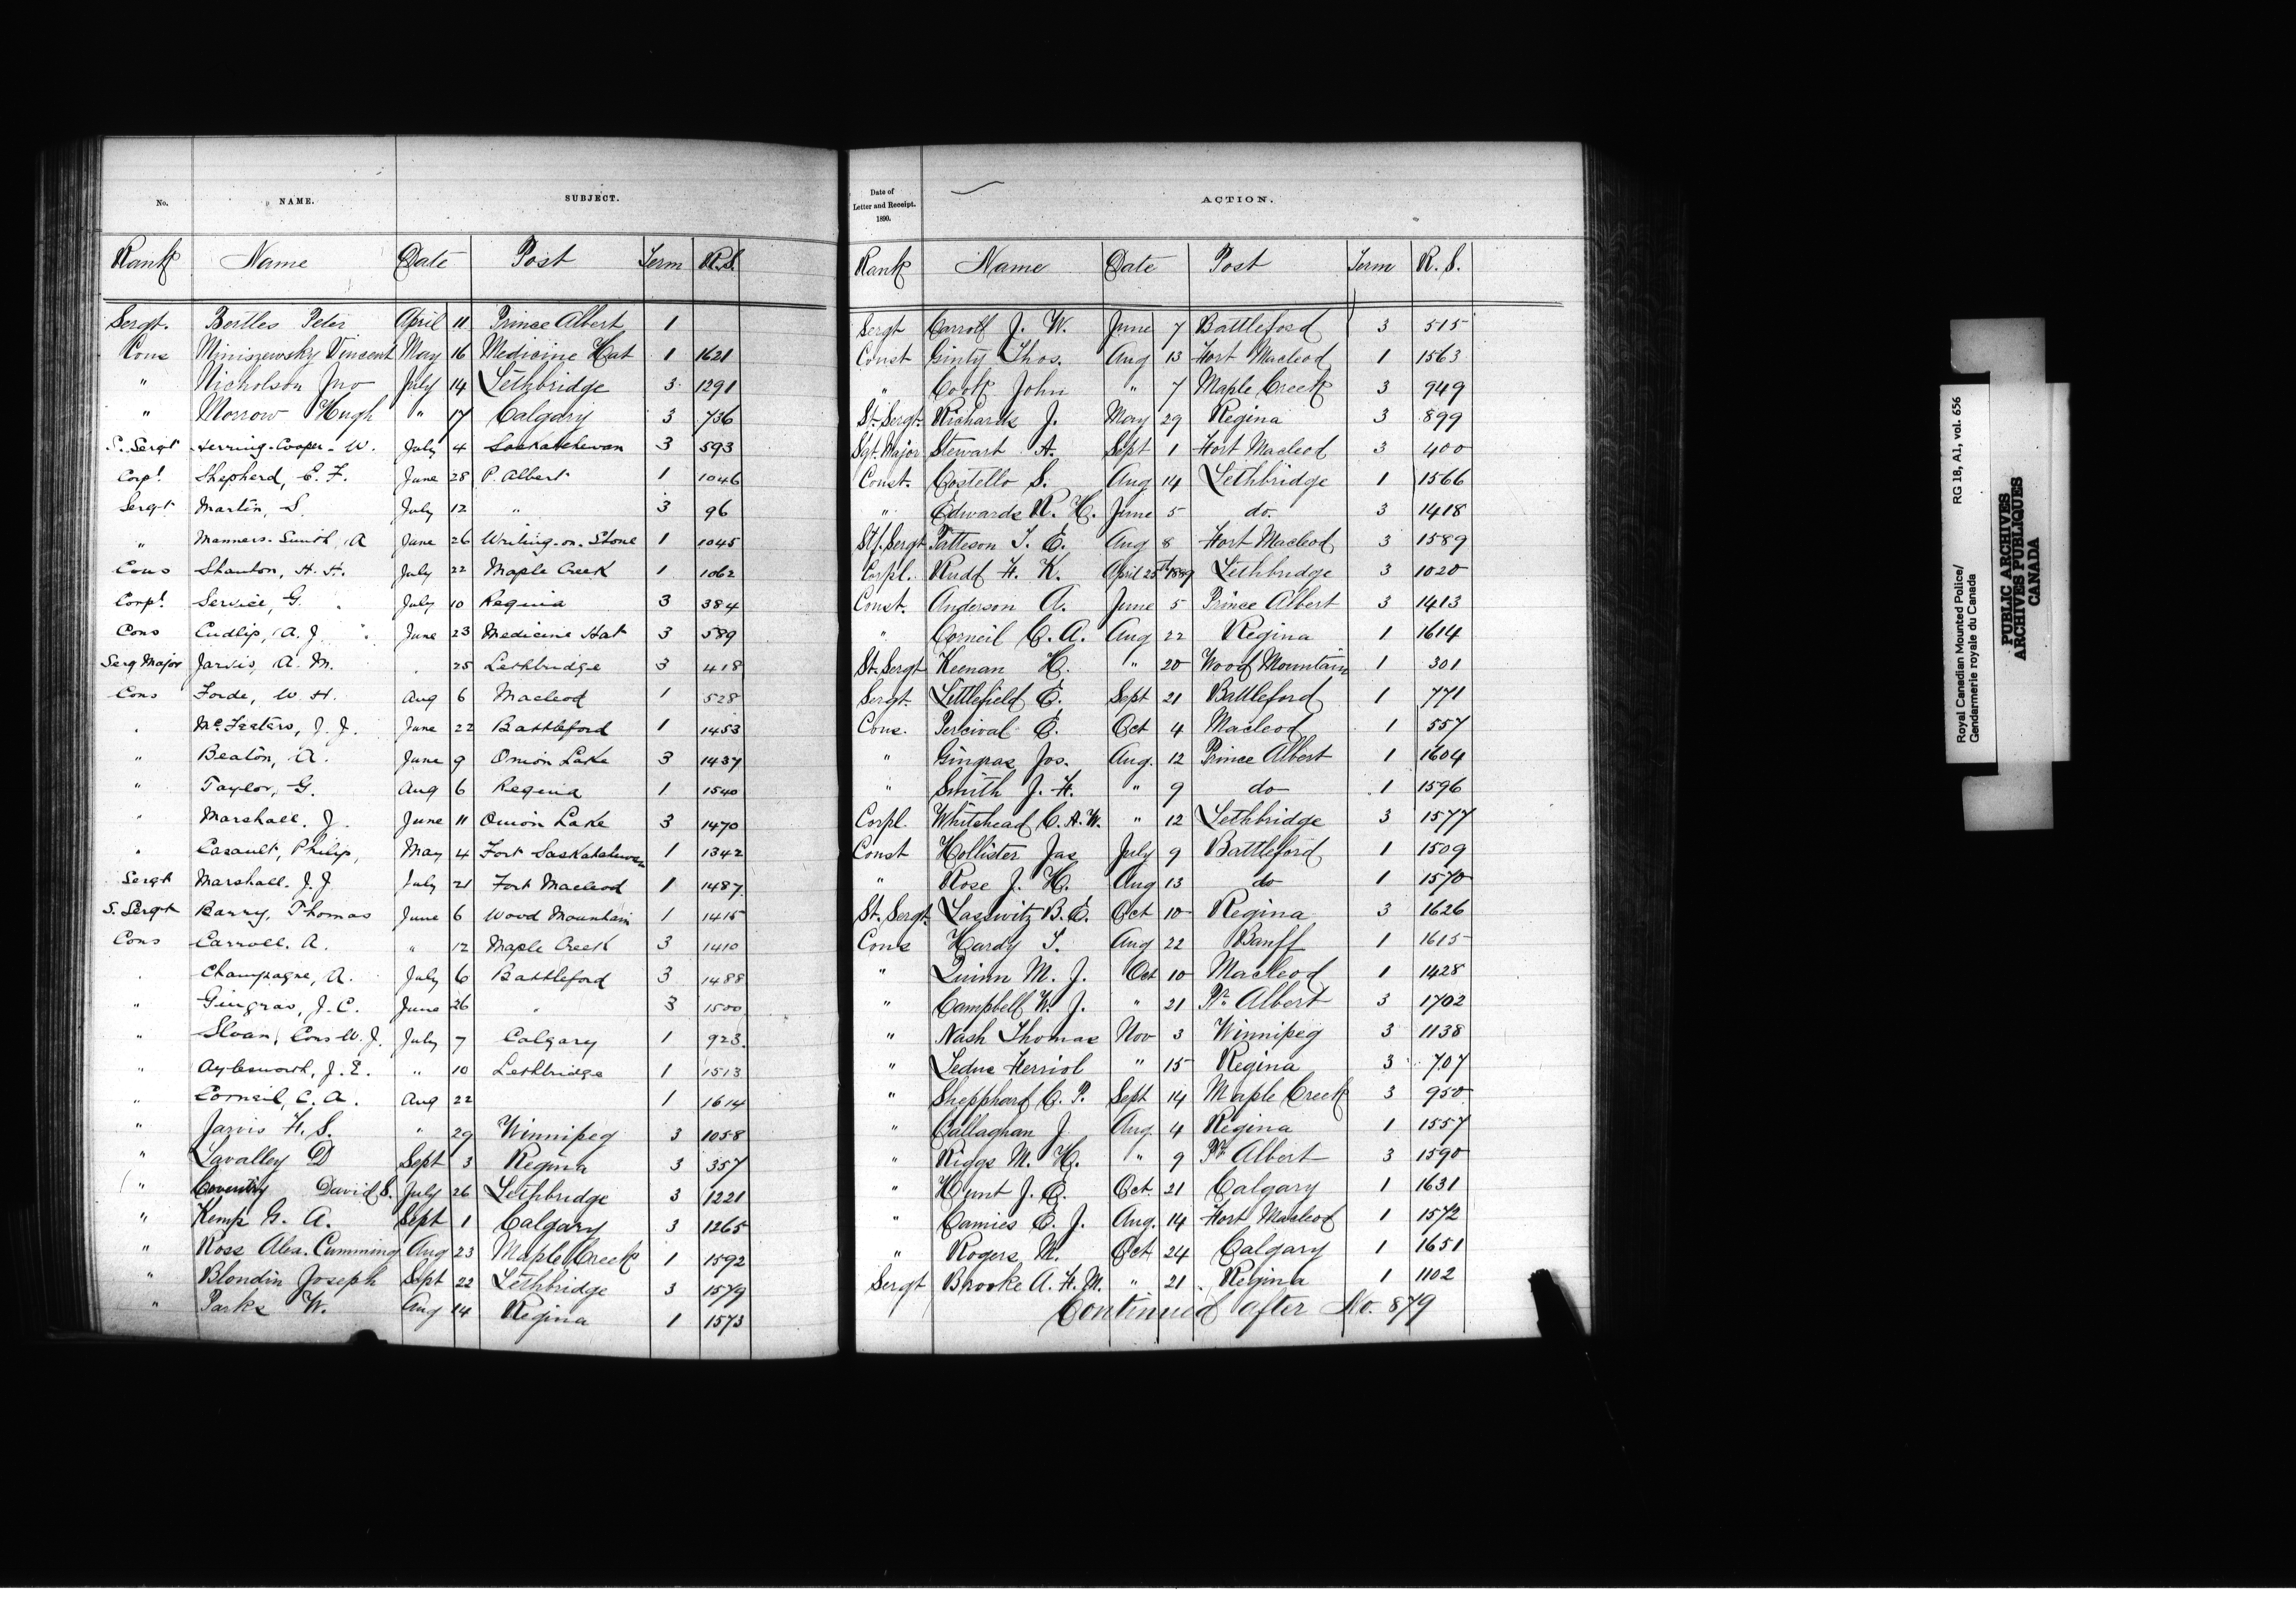 No. NAME. SUBJECT.
Rank Name Date Post Term R.S.
Sergt. Bertles Peter April 11 Prince Albert 1
Cons Miniszewsky Vincent May 16 Medicine Hat 1 1621
" Nicholson Jno July 14 Lethbridge 3 1291
" Morrow Hugh " 17 Calgary 3 736
S. Sergt Herring-Cooper - W. July 4 Saskatchewan 3 593
Corpl. Shepherd, E. F. June 28 P. Albert 1 1046
Sergt Martin, S. July 12 " 3 96
" Manners-Smith, A June 26 Writing-on-Stone 1 1045
Cons Stanton, H. H. July 22 Maple Creek 1 1062
Corpl. Service, G. July 10 Regina 3 384
Cons Cudlip, A. J. June 23 Medicine Hat 3 589
Serg Major Jarvis, A. M. " 25 Lethbridge 3 418
Cons Forde, W. H. Aug 6 Macleod 1 528
" McFeaters, J. J. June 22 Battleford 1 1453
" Beaton, A. June 9 Onion Lake 3 1437
" Taylor, G. Aug 6 Regina 1 1540
" Marshall. J. June 11 Onion Lake 3 1470
" Casault, Philip, May 4 Fort Saskatchewan 1 1342
Sergt Marshall. J. J. July 21 Fort Macleod 1 1487
S. Sergt Barry, Thomas June 6 Wood Mountain 1 1415
Cons Carroll. A. " 12 Maple Creek 3 1410
" Champagne, A. July 6 Battleford 3 1488
" Gingras, J. C. June 26 " 3 1500
" Sloan, Cons W. J. July 7 Calgary 1 923
" Aylesworth, J. E. " 10 Lethbridge 1 1513
" Corneil, C. A. Aug 22 1 1614
" Jarvis H. S. " 29 Winnipeg 3 1058
" Lavalley D Sept 3 Regina 3 357
" Coventry David S. July 26 Lethbridge 3 1221
" Kemp G. A. Sept 1 Calgary 3 1265
" Ross Alex. Cumming Aug 23 Maple Creek 1 1592
" Blondin Joseph Sept 22 Lethbridge 3 1579
" Parks W. Aug 14 Regina 1 1573
Date of
Letter and Receipt.
1890.
ACTION.
Rank Name Date Post Term R. S.
Sergt Carroll J. W. June 7 Battleford 3 515
Const Ginty Thos. Aug 13 Fort Macleod 1 1563
" Cook John " 7 Maple Creek 3 949
St. Sergt. Richards J. May 29 Regina 3 899
Sgt. Major Stewart A. Sept 1 Fort Macleod 3 400
Const. Costello S. Aug 14 Lethbridge 1 1566
" Edwards R. H. June 5 do. 3 1418
Stf. Sergt Patteson T. E. Aug 8 Fort Macleod 3 1589
Corpl. Rudd F. K. April 25th 1889 Lethbridge 3 1020
Const. Anderson A. June 5 Prince Albert 3 1413
" Corneil C. A. Aug 22 Regina 1 1614
St. Sergt Keenan H. " 20 Wood Mountain 1 301
Sergt. Littlefield E. Sept 21 Battleford 1 771
Cons. Percival E. Oct 4 Macleod 1 557
" Gingras Jos. Aug. 12 Prince Albert 1 1604
" Smith J. H. " 9 do 1 1596
Corpl. Whitehead C. A. W. " 12 Lethbridge 3 1577
Const Hollister Jas July 9 Battleford 1 1509
" Rose J. H. Aug 13 do 1 1570
St. Sergt. Lasswitz B. E. Oct 10 Regina 3 1626
Cons Hardy T. Aug 22 Banff 1 1615
" Quinn M. J. Oct 10 Macleod 1 1428
" Campbell W. J. " 21 Pr. Albert 3 1702
" Nash Thomas Nov 3 Winnipeg 3 1138
" Leduc Herriol " 15 Regina 3 707
" Shepphard C. P. Sept 14 Maple Creek 3 950
" Callaghan J Aug 4 Regina 1 1557
" Riggs M. H. " 9 Pr. Albert 3 1590
" Hunt J. E. Oct. 21 Calgary 1 1631
" Camies E. J. Aug. 14 Fort Macleod 1 1572
" Rogers M. Oct 24 Calgary 1 1651
Sergt Brooke A. H. M. " 21 Regina 1 1102
Continued after No. 879
Royal Canadian Mounted Police/ RG 18, A1, vol. 656
Gendarmerie royale du Canada
PUBLIC ARCHIVES
ARCHIVES PUBLIQUES
CANADA